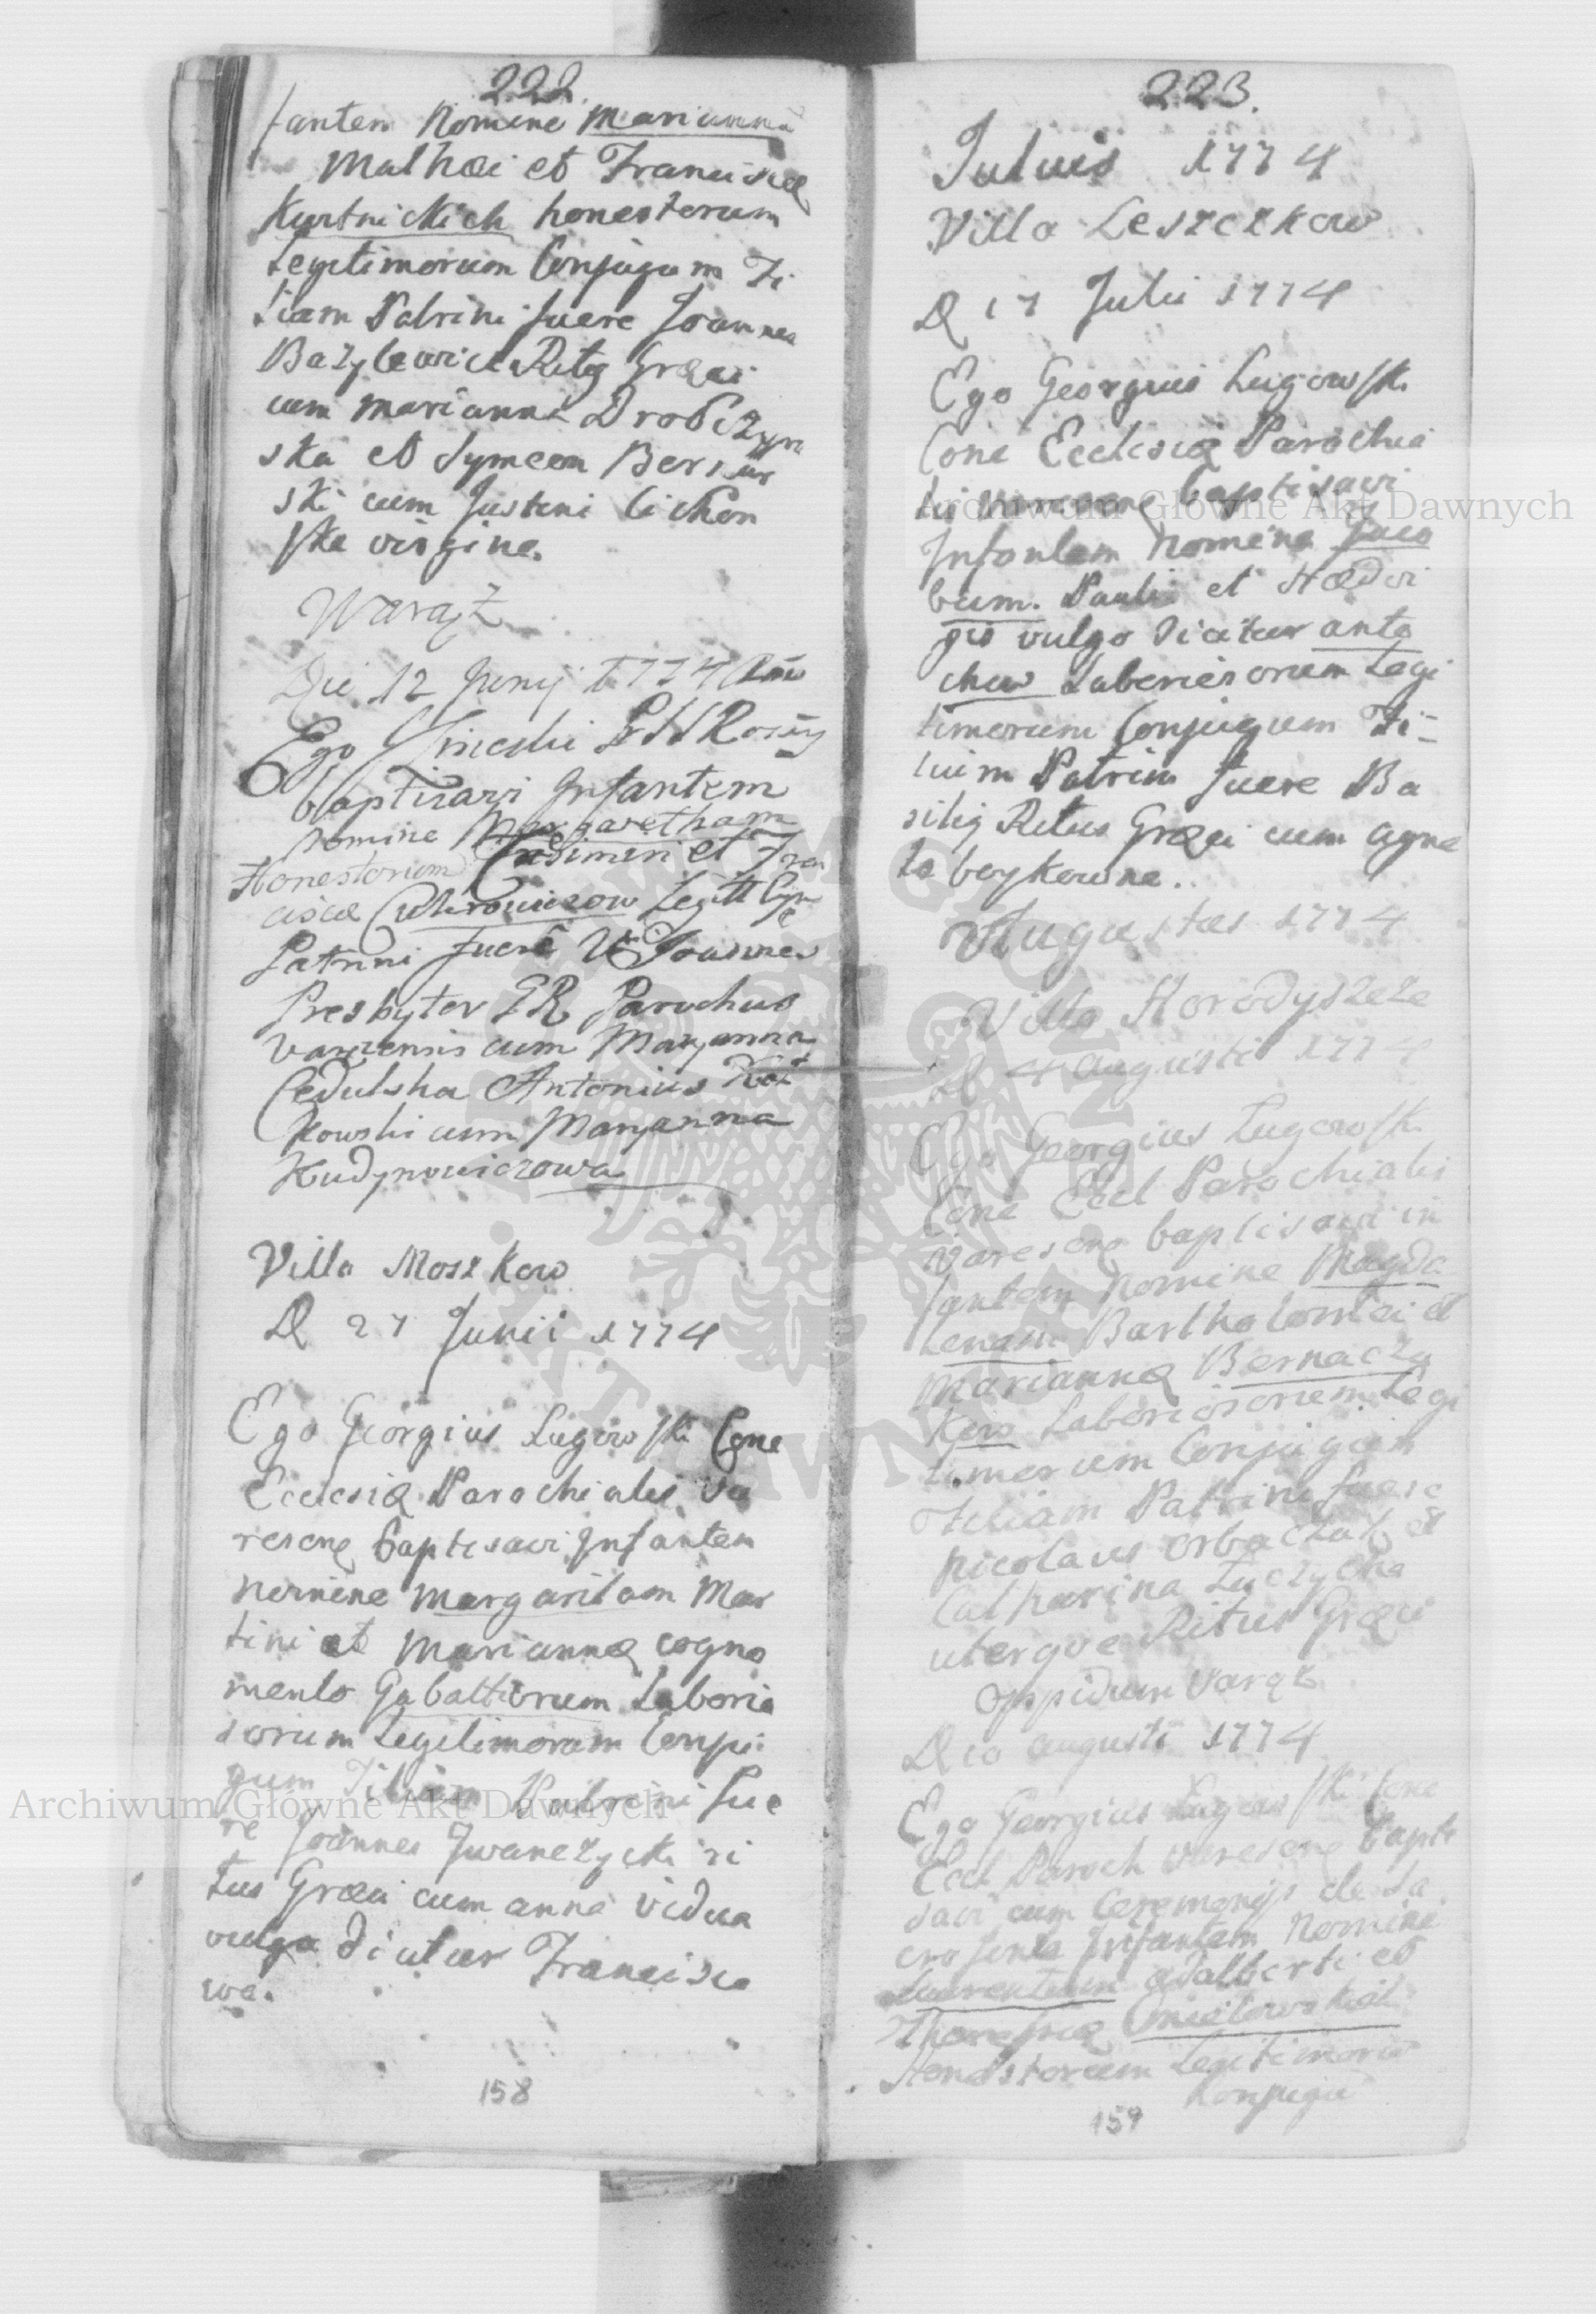 222.
fantem Nomine Marianna
Mathæi et Franciscæ
Kurtnickich honestorum
Legitimorum Conjugum Fi
liam Patrini fuere Joannes
Bazylewicz Ritg Græci
cum Marianna Drobczyn
ska et Symeon
ski cum Justina Cichon
ska virgine.
Warąż
Die 12 Junij 1774
Ego
baptizavi Infantem
nomine Margaretham
Honestorum Casimiri et Fran
ciscæ Legitt
Patrini fuere Joannes
Presbyter GR Parochus
Varzensis cum Maryanna
Cedulska Antonius Kot
kowski cum Maryanna
Kudynowiczowa
Villa Moszkow
D 27 Junii 1774
Ego Georgius Lugowski Cone
Ecclesiæ Parochialis Va
rescne baptisavi Infantem
Nomine Margaritam Mar
tini et Mariannæ cogno
mento Gabaltiorum Laborio
sorum Legitimorum Conju
gum Filiam Patrini fue
re Joannes Iwanczycki ri
tus Græci cum anna vidua
vulgo dicitur Francisco
wa.
158
223.
Julius 1774
Villa Leszczkow
D 17 Julii 1774
Ego Georgius Lugowski
Cone Ecclesiæ Parochia
lis Varescne baptisavi
Infantem Nomine Jaco
bum. Pauli et Hædvi
gis vulgo dicitur anto
chow Laboriosorum Legi
timorum Conjugum Fi-
lium Patrini fuere Ba
silig Ritus Græci cum Agne
ta boykowna.
Augustus 1774
Villa Horodyszcze
D 4 augusti 1774
Ego Georgius Lugowski
Cone Eccl Parochialis
Varescne baptisavi in
fantem Nomine Magda
Lenam Bartholomei et
Mariannæ Bernaczy
kow Laboriosorum Legi
timorum Conjugum
Filiam Patrini fuere
Nicolaus Orbaczuk et
Catharina Łuczycka
uterqve Ritus Græci
Oppidum Varąż
D 10 augusti 1774
Ego Georgius Lugowski Cone
Eccl Paroch Varescne bapti
savi cum Ceremonijs de Sa
cro fonte Infantem Nomine
Laurentium Adalberti et
Theresiæ Cmielowskich
Honestorum Legitimorū
Konjugū
159